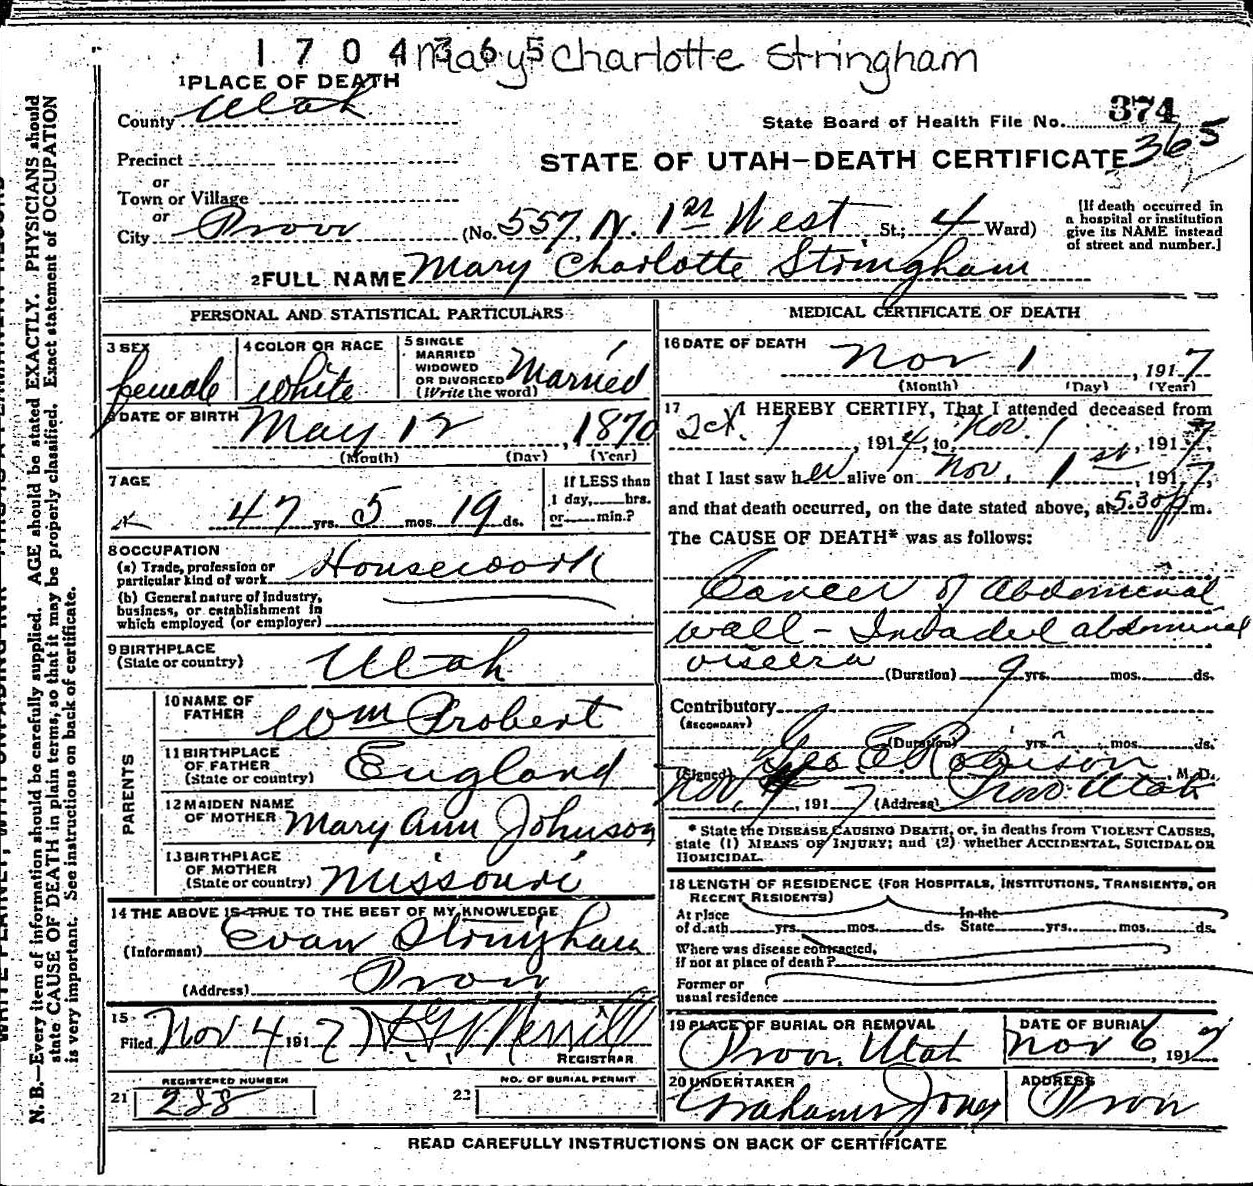 1704365 Mary Charlotte Stringham
1 PLACE OF DEATH
County Utah
State Board of Health File No. 374
365
Precinct
STATE OF UTAH—DEATH CERTIFICATE
or
Town or Village
or
City Provo (No. 557, N. 1st West St.; 4 Ward)
[If death occurred in
a hospital or institution
give its NAME instead
of street and number.]
2 FULL NAME Mary Charlotte Stringham
PERSONAL AND STATISTICAL PARTICULARS
3 SEX female
4 COLOR OR RACE white
5 SINGLE
MARRIED
WIDOWED
OR DIVORCED
(Write the word) Married
6 DATE OF BIRTH May 12, 1870
(Month) (Day) (Year)
7 AGE
47 yrs. 5 mos. 19 ds.
If LESS than
1 day,......hrs.
or......min.?
8 OCCUPATION
(a) Trade, profession or
particular kind of work Housework
(b) General nature of industry,
business, or establishment in
which employed (or employer)
9 BIRTHPLACE
(State or country) Utah
PARENTS
10 NAME OF
FATHER Wm Probert
11 BIRTHPLACE
OF FATHER
(State or country) England
12 MAIDEN NAME
OF MOTHER Mary Ann Johnson
13 BIRTHPLACE
OF MOTHER
(State or country) Missouri
14 THE ABOVE IS TRUE TO THE BEST OF MY KNOWLEDGE
(Informant) Evan Stringham
(Address) Provo
15
Filed Nov 4 1917 H.G. Merrill
REGISTRAR
REGISTERED NUMBER
21 288
NO. OF BURIAL PERMIT
22
MEDICAL CERTIFICATE OF DEATH
16 DATE OF DEATH
Nov 1, 1917
(Month) (Day) (Year)
17 I HEREBY CERTIFY, That I attended deceased from
Oct. 1, 1914, to Nov. 1st, 1917,
that I last saw her alive on Nov. 1st, 1917,
and that death occurred, on the date stated above, at 5.30 p m.
The CAUSE OF DEATH* was as follows:
Cancer of abdomenal
wall - Invaded abdominal
viscera
(Duration) 9 yrs. mos. ds.
Contributory
(SECONDARY)
(Duration) yrs. mos. ds.
(Signed) Geo E. Robison M.D.
Nov, 4, 1917 (Address) Provo. Utah
* State the DISEASE CAUSING DEATH, or, in deaths from VIOLENT CAUSES,
state (1) MEANS OF INJURY; and (2) whether ACCIDENTAL, SUICIDAL OR
HOMICIDAL.
18 LENGTH OF RESIDENCE (FOR HOSPITALS, INSTITUTIONS, TRANSIENTS, OR
RECENT RESIDENTS)
At place In the
of death yrs. mos. ds. State yrs. mos. ds.
Where was disease contracted,
if not at place of death?
Former or
usual residence
19 PLACE OF BURIAL OR REMOVAL
Provo, Utah
DATE OF BURIAL
Nov 6, 1917
20 UNDERTAKER
Grahams Jones
ADDRESS
Provo
READ CAREFULLY INSTRUCTIONS ON BACK OF CERTIFICATE
N. B.—Every item of information should be carefully supplied. AGE should be stated EXACTLY. PHYSICIANS should
state CAUSE OF DEATH in plain terms, so that it may be properly classified. Exact statement of OCCUPATION
is very important. See instructions on back of certificate.